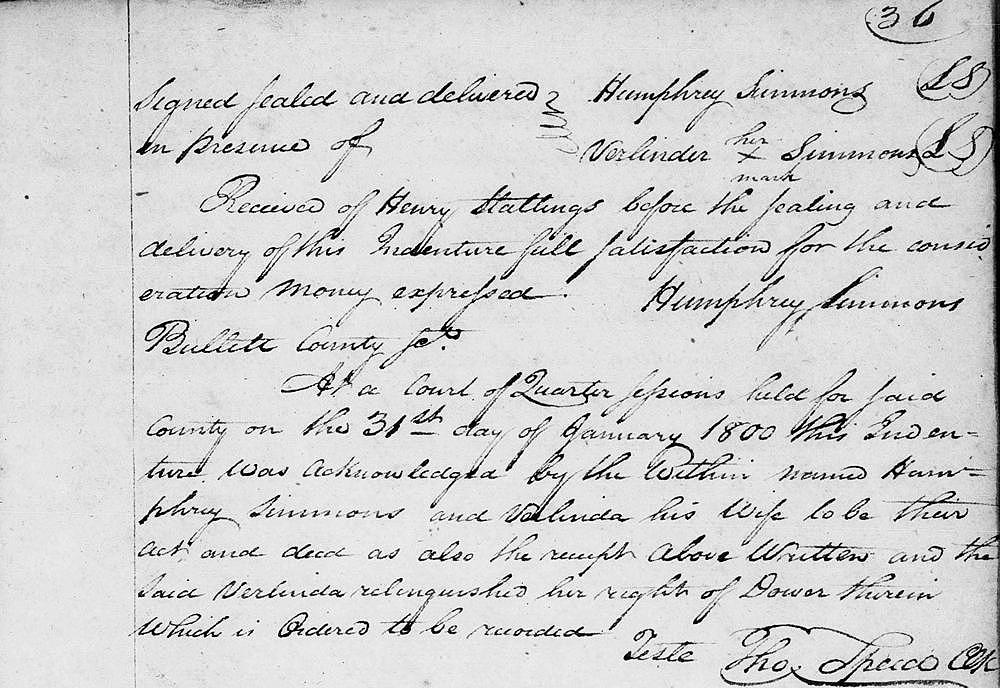 36
Signed sealed and delivered Humphrey Simmons (LS)
in presence of Verlinder her x mark Simmons (LS)
Recieved of Henry Stallings before the sealing and
delivery of this Indenture full satisfaction for the consid
eration money expressed. Humphrey Simmons
Bullett County Sct.
At a Court of Quarter sessions held for said
County on the 31st day of January 1800 this Inden-
ture Was Acknowledged by the Within named Hum-
phrey Simmons and Verlinda his Wife to be their
Act and deed as also the receipt Above Written and the
Said Verlinda relinguished her right of Dower therein
Which is Ordered to be recorded
Teste Tho. Speed Clk